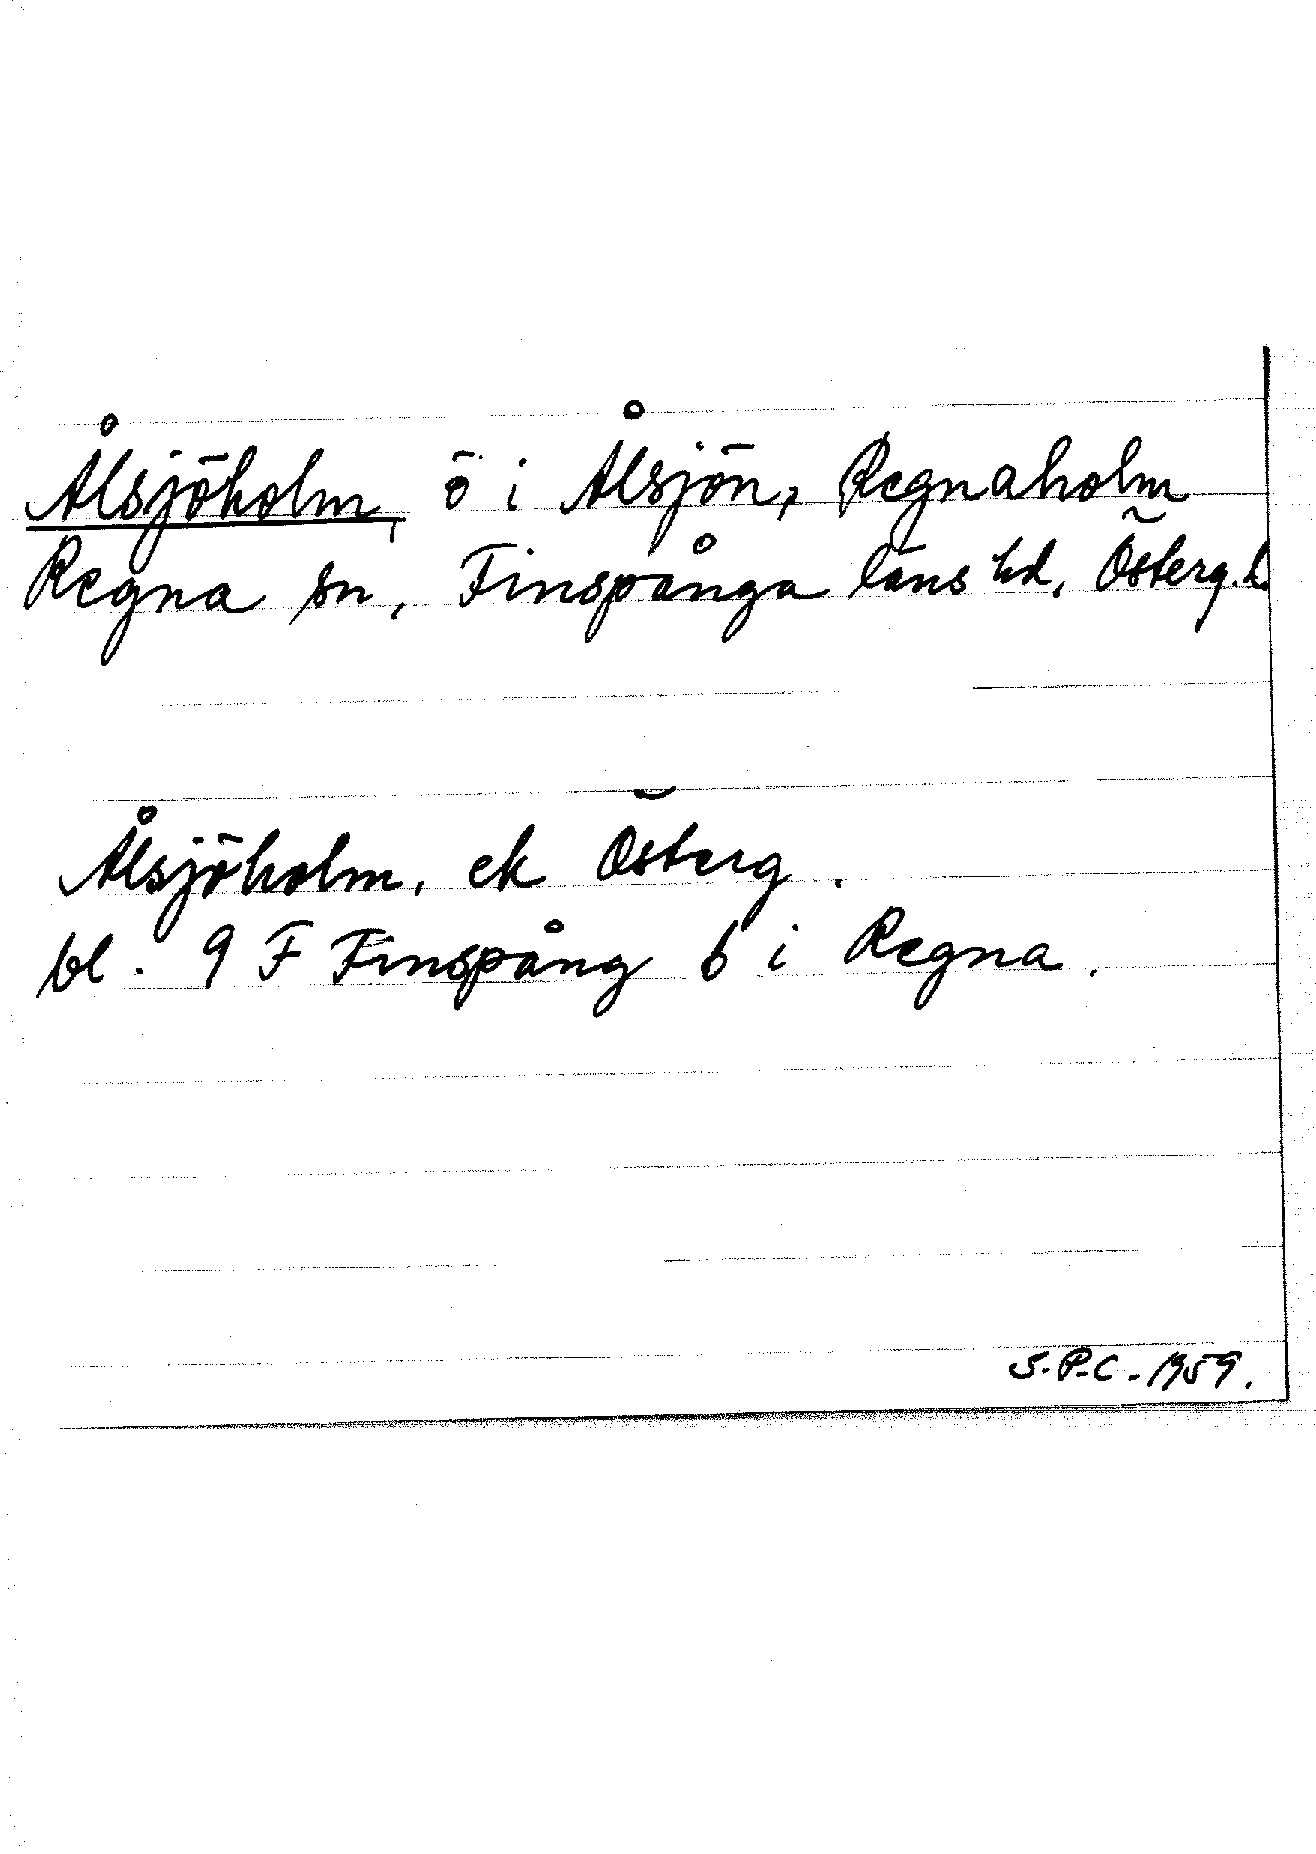 Ålsjöholm, ö i Ålsjön, Regnaholm
Regna sn, Finspånga läns hd, Österg. L
Ålsjöholm, ek Österg.
bl. 9 F Finspång b i Regna.
S.P.C. 1959.